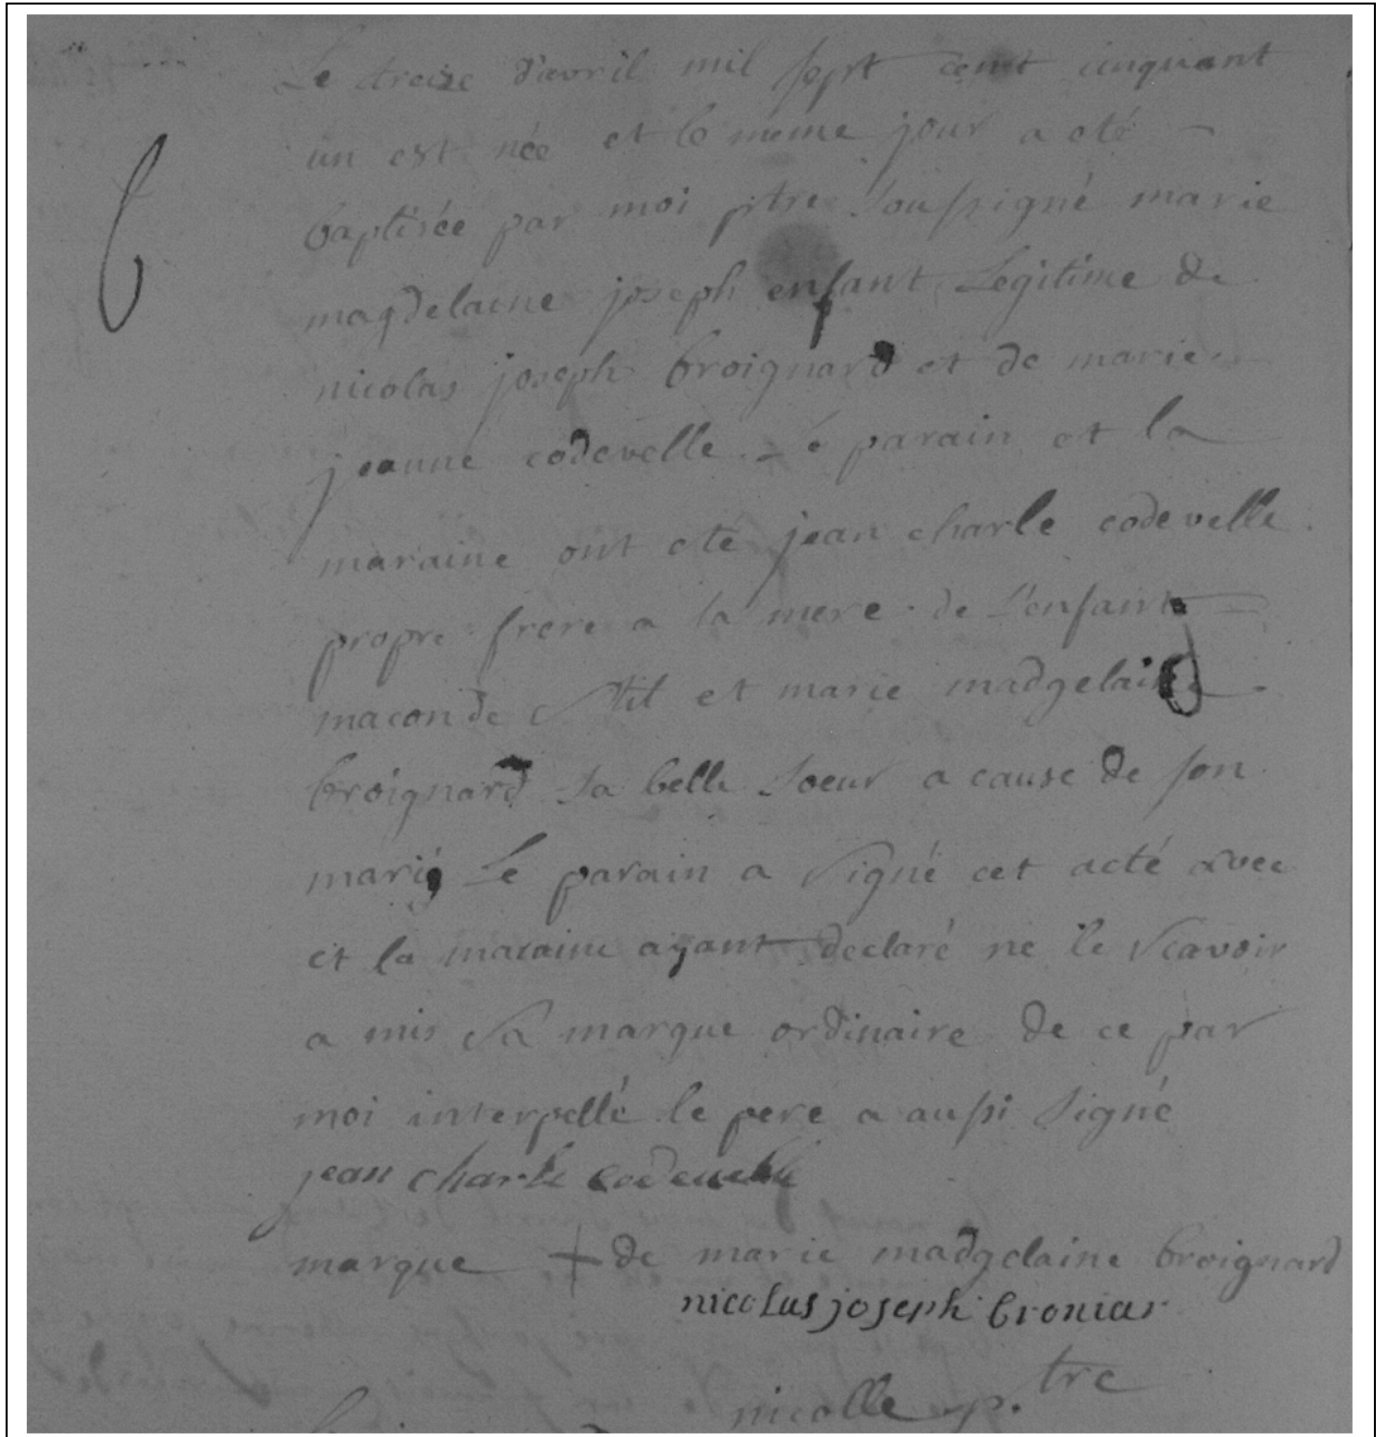 Le treize d'avril mil sept cent cinquant
un est née et le meme jour a eté
baptisée par moi ptre soussigné marie
magdelaine joseph enfant Legitime de
nicolas joseph broignard et de marie
jeanne codevelle Le parain et la
maraine ont eté jean charle codevelle
propre frere a la mere de L'enfant
macon de et marie madgelaine
broignard sa belle soeur a cause de son
marié Le parain a signé cet acté avec
et la maraine ayant declaré ne le scavoir
a mis sa marque ordinaire de ce par
moi interpellé le pere a aussi signé
jean charle codevelle
marque + de marie madgelaine broignard
nicolas joseph broniar
nicolle p.tre